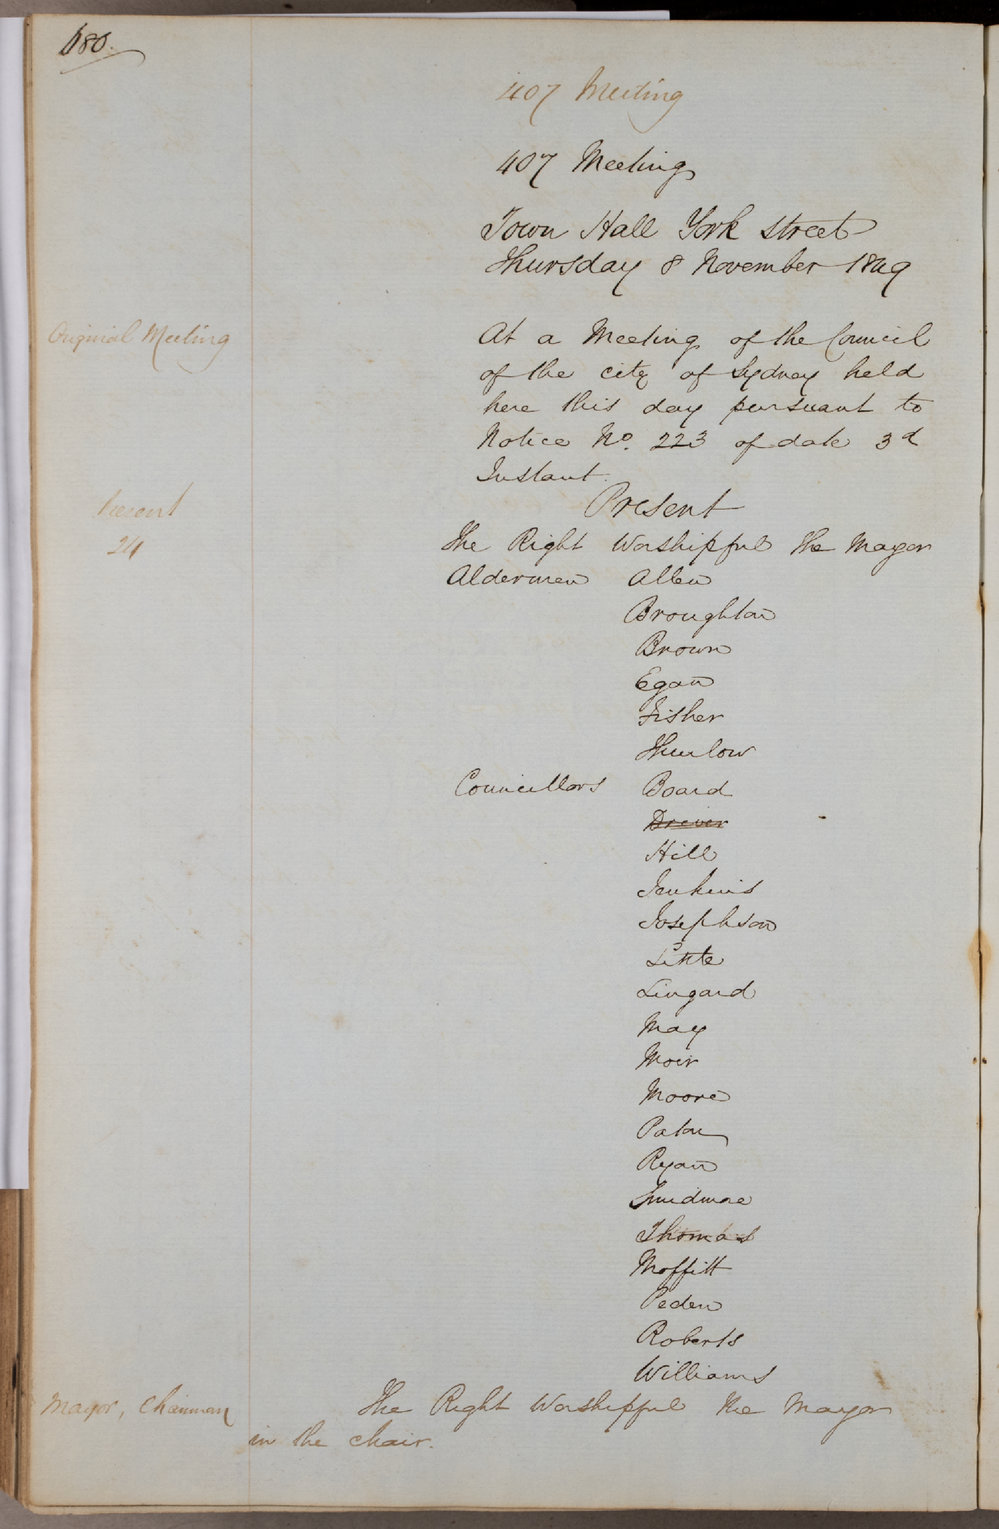 680.
407 Meeting
407 Meeting
Town Hall York street
Thursday 8 November 1849
Original Meeting
At a Meeting of the Council
of the city of Sydney held
here this day pursuant to
Notice No. 223 of date 3d
Instant.
Present
Present
24
The Right Worshipful the Mayor
Aldermen Allen
Broughton
Brown
Egan
Fisher
Thurlow
Councillors Board
Driver
Hill
Jenkins
Josephson
Little
Lingard
May
Moir
Moore
Paton
Ryan
Smidmore
Thomas
Moffitt
Peden
Roberts
Williams
Mayor, Chairman
The Right Worshipful the Mayor
in the chair.